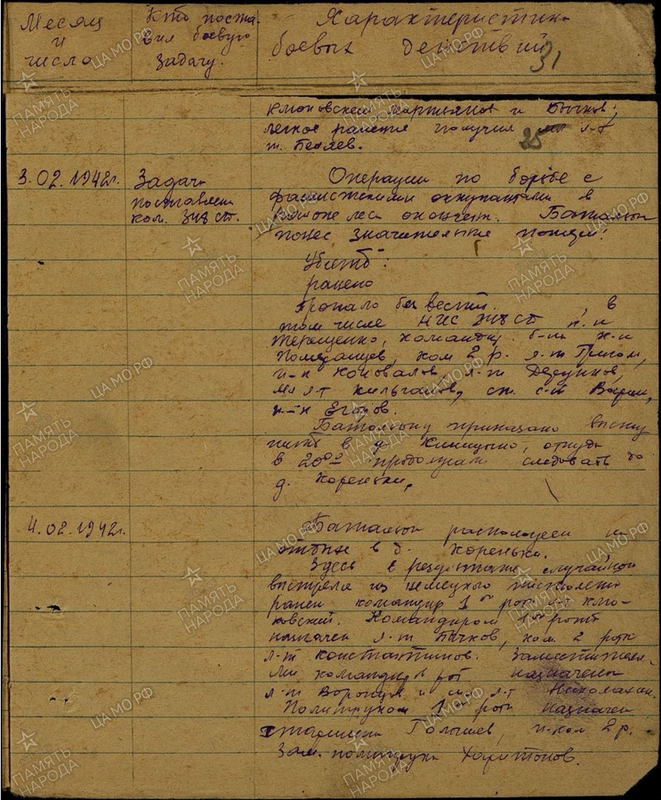 Месяц и число
Кто поста-
вил боевую
задачу.
Характеристика
боевых действий
31
клюковский, Мартьянов и Бычков;
легкое ранение получил л-т
т. Беляев.
25
3.02.1942г.
Задача
поставлена
ком.
Операции по борьбе с
фашистскими оккупантами в
районе леса окончит. Батальон
понес значительные потери:
Убито:
ранено
пропало без вести. , в
том числе НИС п.и
Терещенко, командир б-на к-н
Померанцев, ком 2 р. л-т
п-к Коновалов, л-т
мл л-т ст. с-т
п-к
Батальону приказано высту
пить в д. откуда
в 20⁰⁰ продолжат следовать до
д. Кореньки.
4.02.1942г.
Батальон расположен на
отдых в д. Кореньки.
Здесь в результате случайного
выстрела из немецкого пистолета
ранен командир 1ой роты Клю-
ковский. Командиром 1ой роты
назначен л-т Бычков, ком. 2 роты
л-т Константинов. Заместителя-
ми командиров рот назначены
л-т и мл. л-т
Политруком 1 роты назначен
старшина Голышев, п-ком 2 р.
Зам. политрука Харитонов.
ПАМЯТЬ НАРОДА
ЦАМО.РФ